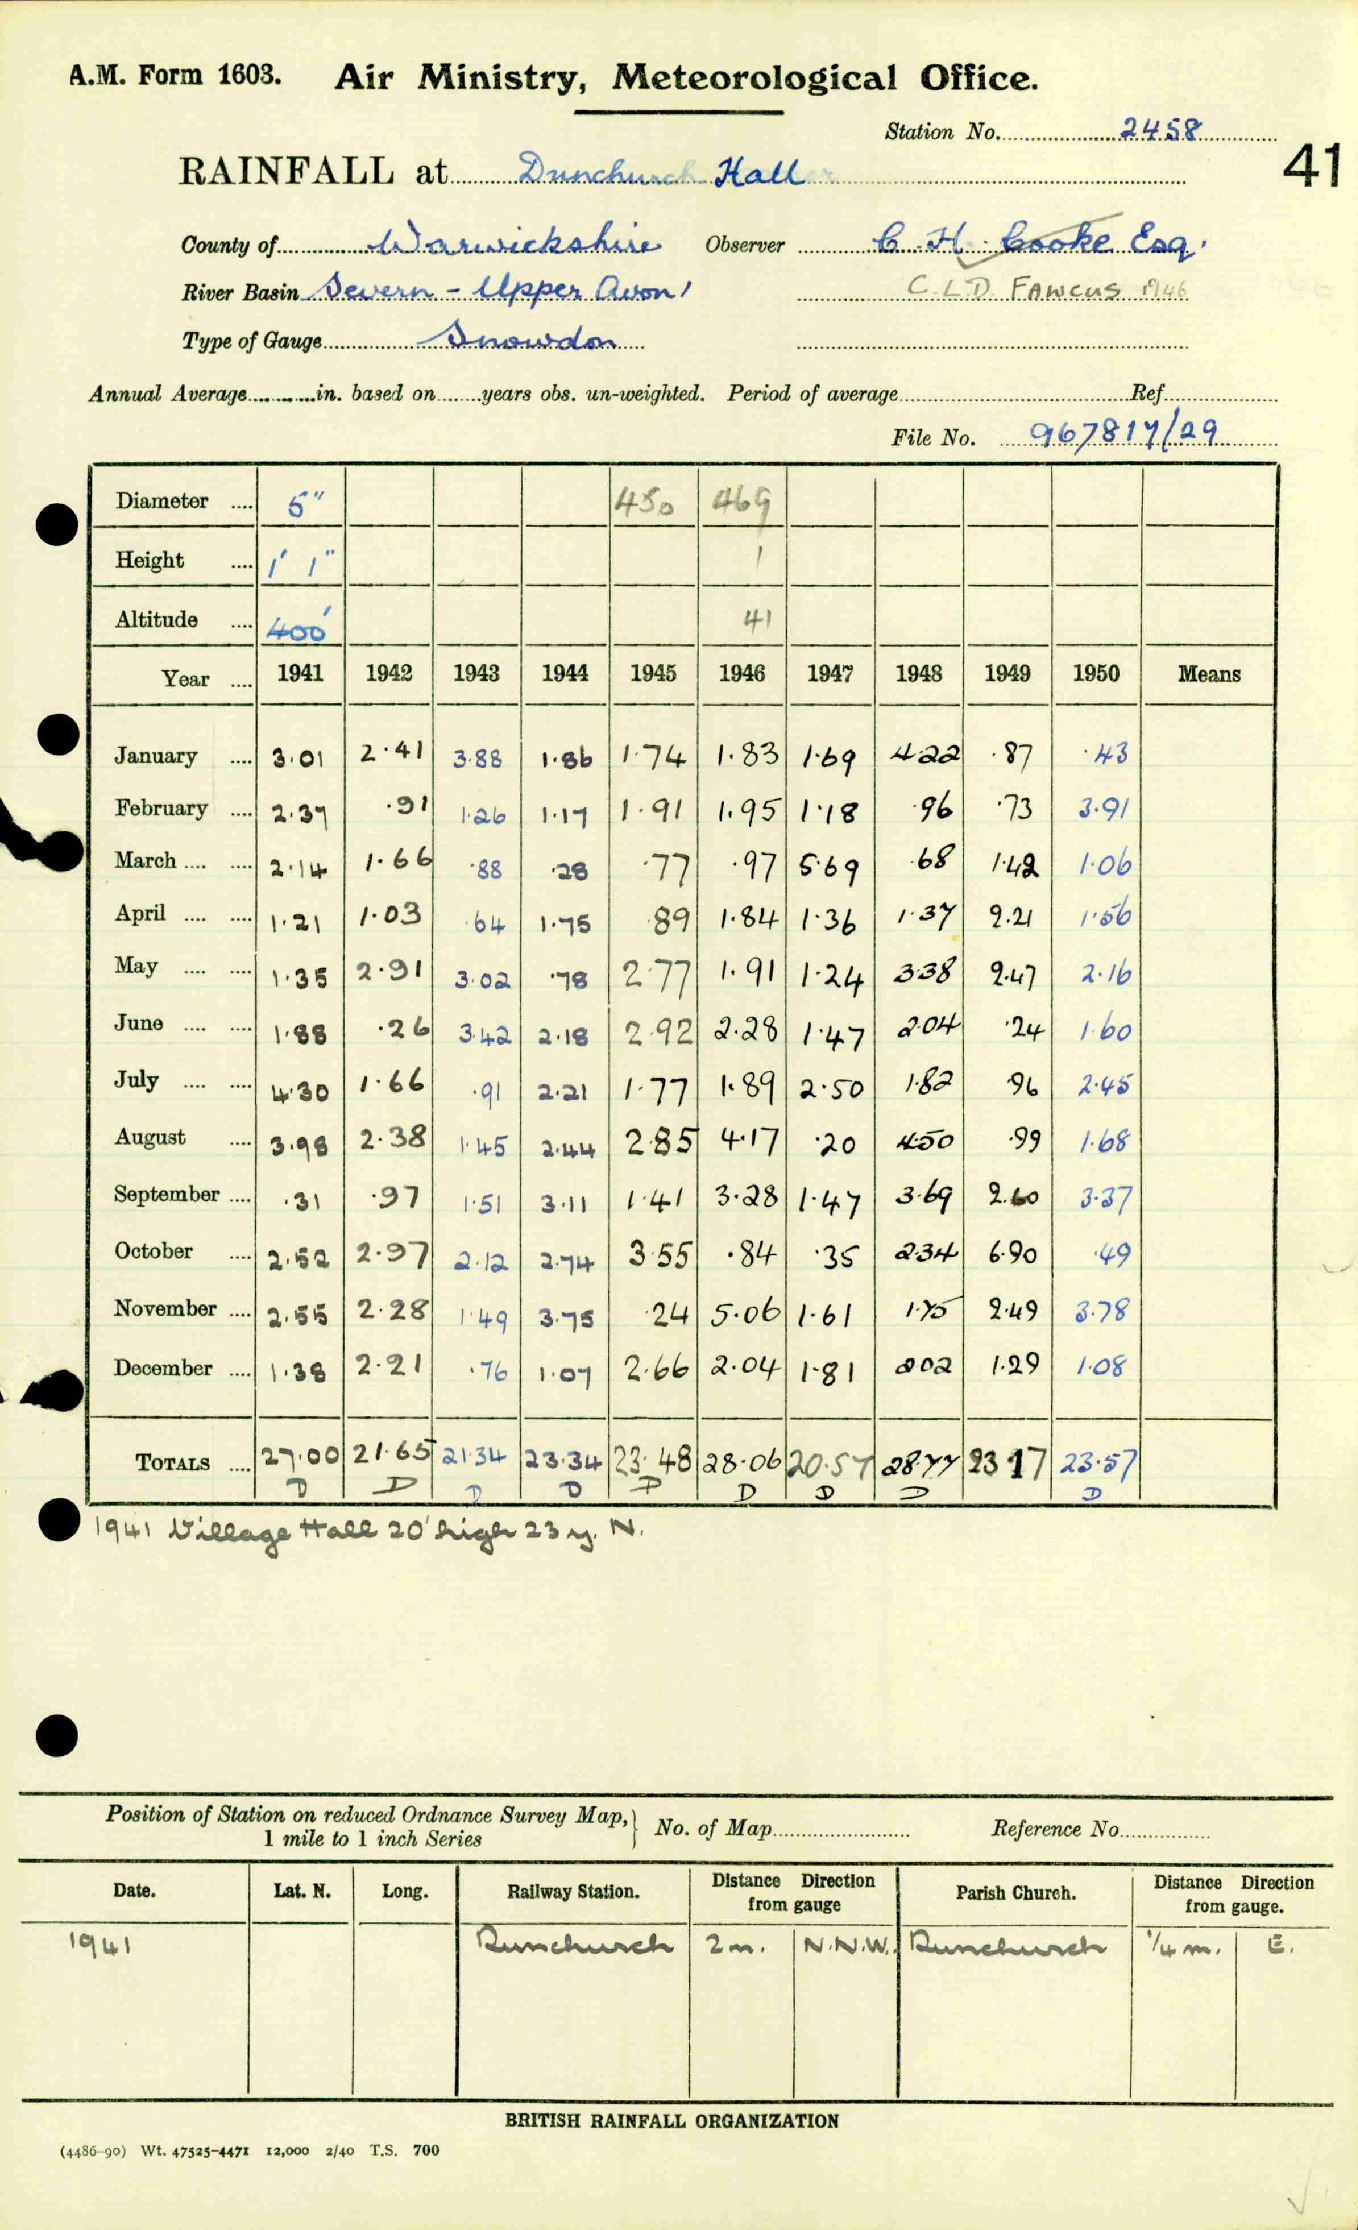 A.M. Form 1603. Air Ministry, Meteorological Office.
Station No. 2458
41
RAINFALL at Dunchurch Hall
County of Warwickshire Observer C. H. Cooke Esq.
River Basin Severn - Upper Avon C.L.D. FAWCUS 1946
Type of Gauge Snowdon
Annual Average in. based on years obs. un-weighted. Period of average Ref.
File No. 967817/29
Diameter .... 5" 450 469
Height .... 1' 1" 1
Altitude .... 400' 41
Year .... 1941 1942 1943 1944 1945 1946 1947 1948 1949 1950 Means
January .... 3.01 2.41 3.88 1.86 1.74 1.83 1.69 4.22 .87 .43
February .... 2.37 .91 1.26 1.17 1.91 1.95 1.18 .96 .73 3.91
March .... .... 2.14 1.66 .88 .28 .77 .97 5.69 .68 1.42 1.06
April .... .... 1.21 1.03 .64 1.75 .89 1.84 1.36 1.37 2.21 1.56
May .... .... 1.35 2.91 3.02 .78 2.77 1.91 1.24 3.38 2.47 2.16
June .... .... 1.88 .26 3.42 2.18 2.92 2.28 1.47 2.04 .24 1.60
July .... .... 4.30 1.66 .91 2.21 1.77 1.89 2.50 1.82 .96 2.45
August .... 3.98 2.38 1.45 2.44 2.85 4.17 .20 4.50 .99 1.68
September .... .31 .97 1.51 3.11 1.41 3.28 1.47 3.69 2.60 3.37
October .... 2.52 2.97 2.12 2.74 3.55 .84 .35 2.34 6.90 .49
November .... 2.55 2.28 1.49 3.75 .24 5.06 1.61 1.75 2.49 3.78
December .... 1.38 2.21 .76 1.07 2.66 2.04 1.81 2.02 1.29 1.08
TOTALS .... 27.00 21.65 21.34 23.34 23.48 28.06 20.57 28.77 23.17 23.57
D D D D D D D D D
1941 Village Hall 20' high 23 y. N.
Position of Station on reduced Ordnance Survey Map, } No. of Map Reference No.
1 mile to 1 inch Series
Date. Lat. N. Long. Railway Station. Distance Direction from gauge Parish Church. Distance Direction from gauge.
1941 Dunchurch 2 m. N.N.W. Dunchurch 1/4 m. E.
BRITISH RAINFALL ORGANIZATION
(4486-90) Wt. 47525-4471 12,000 2/40 T.S. 700